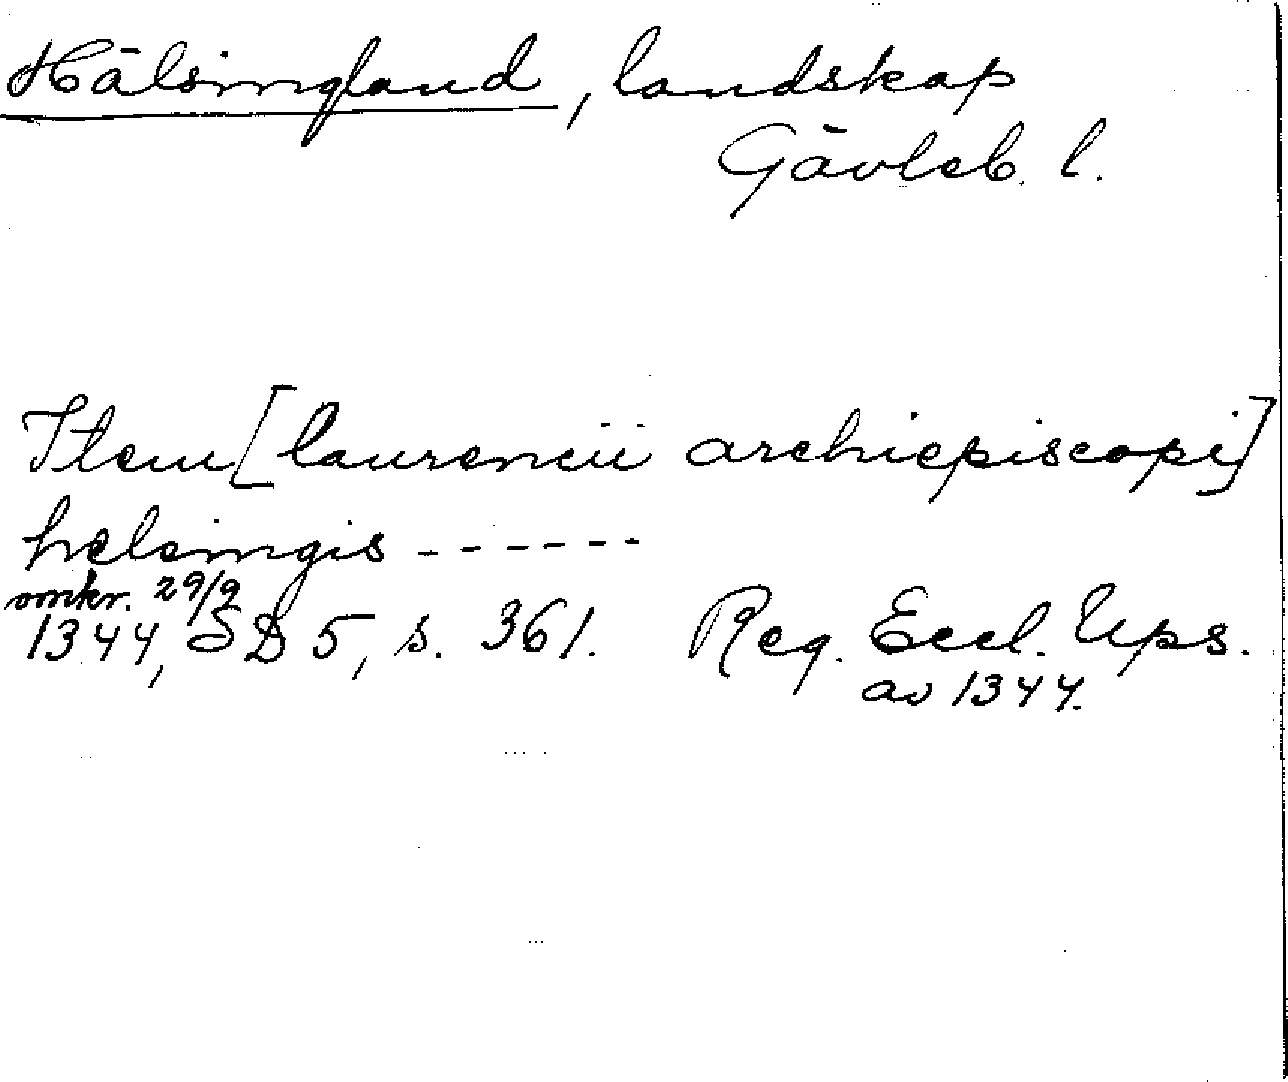 Hälsingland, landskap
Gävleb. l.
Item [laurencii archiepiscopi]
helsingis ------
omkr. 29/9
1344, SD 5, s. 361. Reg. Eccl. Ups.
av 1344.